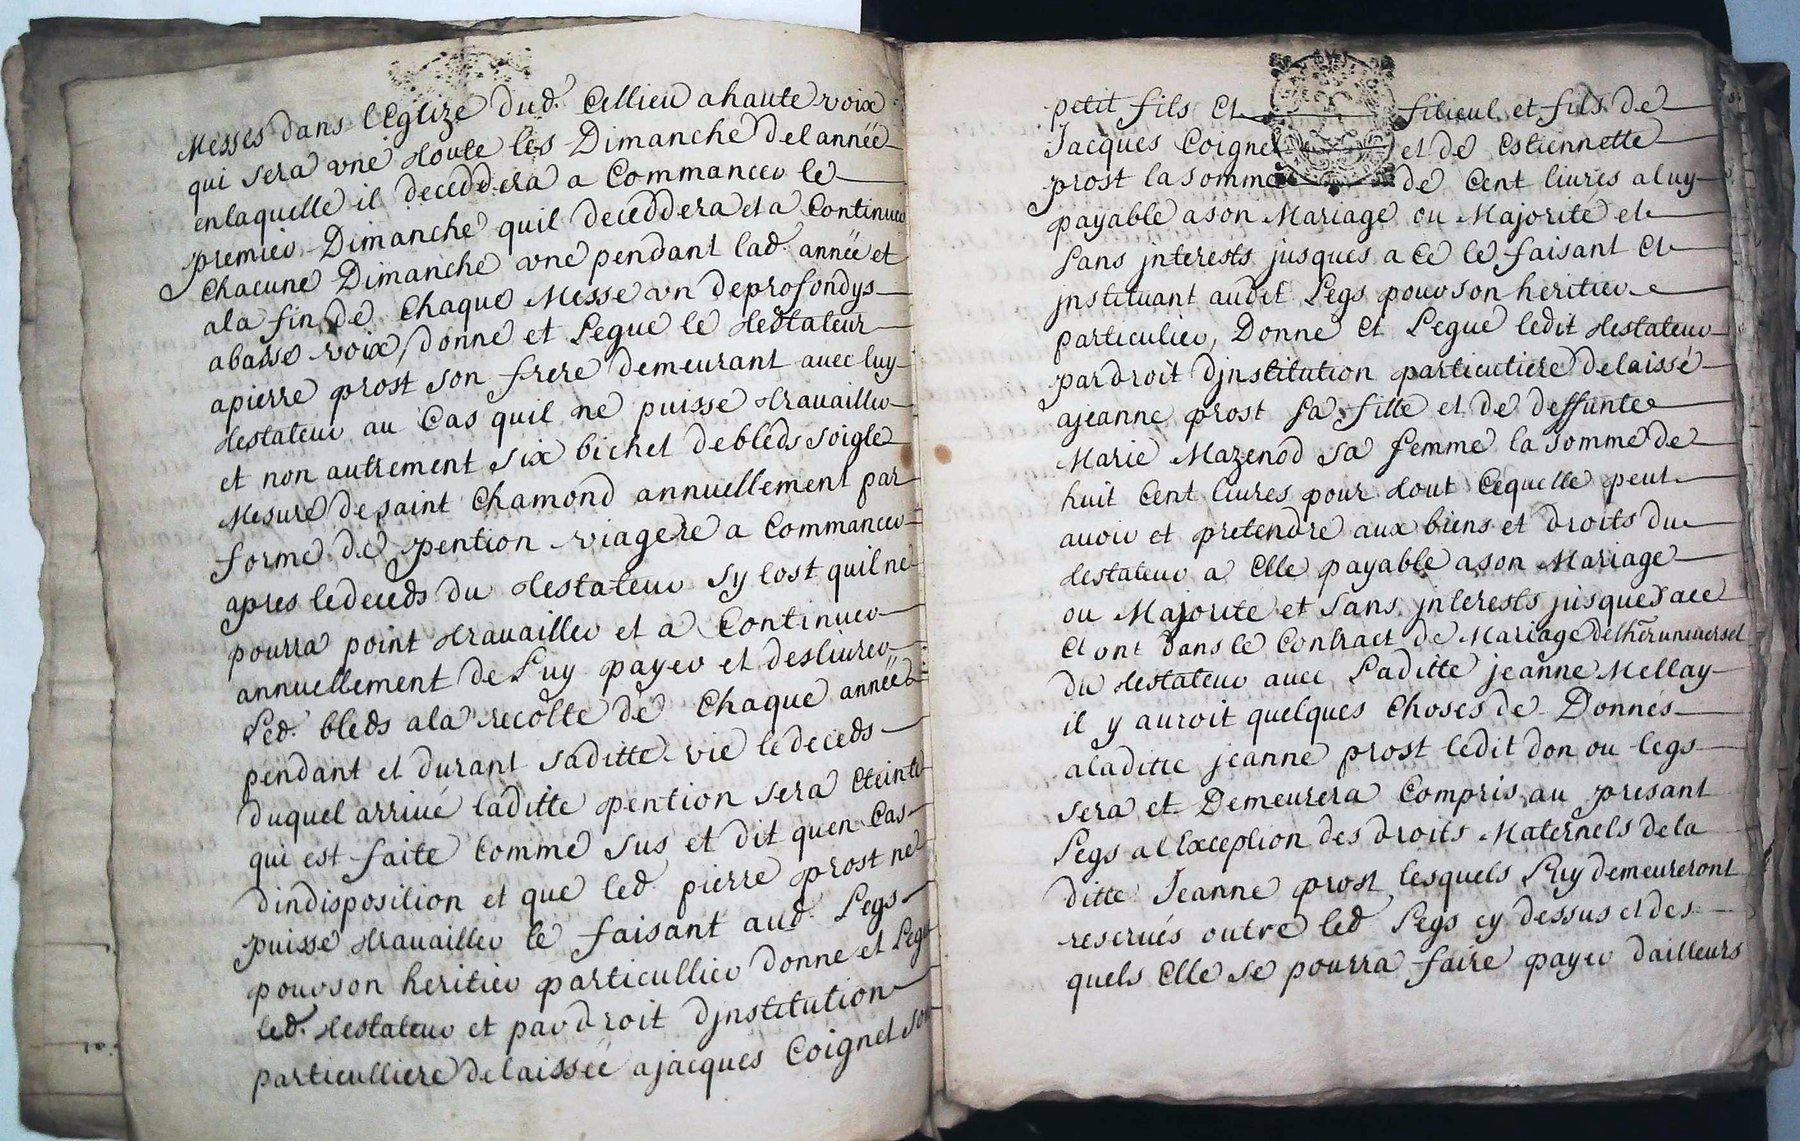 Messes dans l'Eglize dud. Cellieu a haute voix
qui sera vne toute les Dimanche de l année
en laquelle il deceddera a Commancer le
premier Dimanche quil deceddera et a Continuer
Chacune Dimanche vne pendant lad. année et
a la fin de Chaque Messe vn deprofondys
a basse voix, donne et Legue le testateur
a pierre prost son frere demeurant avec luy
testateur au Cas quil ne puisse trauailler
et non autrement six bichet de bleds soigle
Mesure de saint Chamond annuellement par
forme de pention viagere a Commancer
apres le deceds du testateur sy tost quil ne
pourra point trauailler et a Continuer
annuellement de Luy payer et desliurer
Led. bleds a la recolte de Chaque année
pendant et durant saditte vie le deceds
duquel arriué laditte pention sera Eteinte
qui est faite Comme sus et dit quen Cas
dindisposition et que led. pierre prost ne
puisse trauailler le faisant aud. Legs
pour son heritier particullier donne et Legue
led. testateur et par droit djnstitution
particulliere delaissée a jacques Coignet son
petit fils Et filieul et fils de
Jacques Coignet et de Estiennette
prost la somme de Cent liures a luy
payable a son Mariage ou Majorité et
sans jnterests jusques a Ce le faisant Et
jnstituant audit Legs pour son heritier
particulier, Donne Et Legue ledit testateur
par droit djnstitution particuliere delaissé
a jeanne prost sa fille et de deffunte
Marie Mazenod sa femme la somme de
huit Cent liures pour tout Cequelle peut
auoir et pretendre aux biens et droits du
testateur a Elle payable a son Mariage
ou Majorité et sans jnterests jusques a ce
Et ont dans le Contract de Mariage de lher uniuersel
du testateur auec Laditte jeanne Mellay
il y auroit quelques Choses de Donnés
a laditte jeanne prost ledit don ou legs
sera et Demeurera Compris au presant
Legs a l Exception des droits Maternels de la
ditte Jeanne prost lesquels Luy demeureront
reserués outre led Legs cy dessus et des
quels Elle se pourra faire payer dailleurs